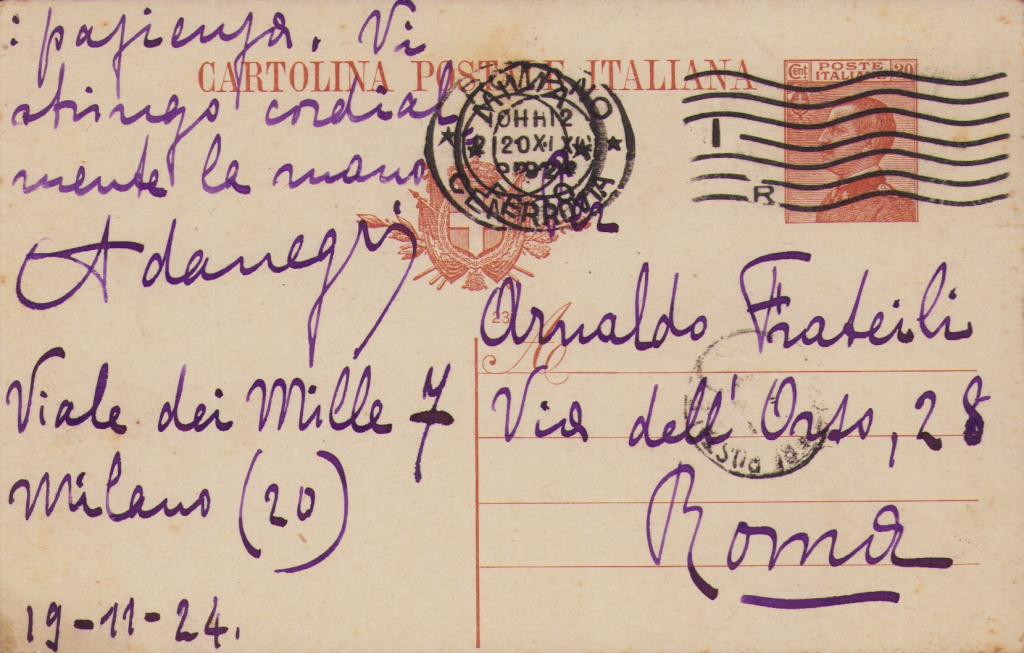 : pazienza. Vi
stringo cordial
mente la mano
Adanegi
Viale dei Mille 7
Milano (20)
19-11-24.
CARTOLINA POSTALE ITALIANA
MILANO
CENTRO
FERROVIA
20 XI
R
Cent POSTE 30
ITALIANE
23
A
Arnaldo Frateili
Via dell'Orso, 28
Roma